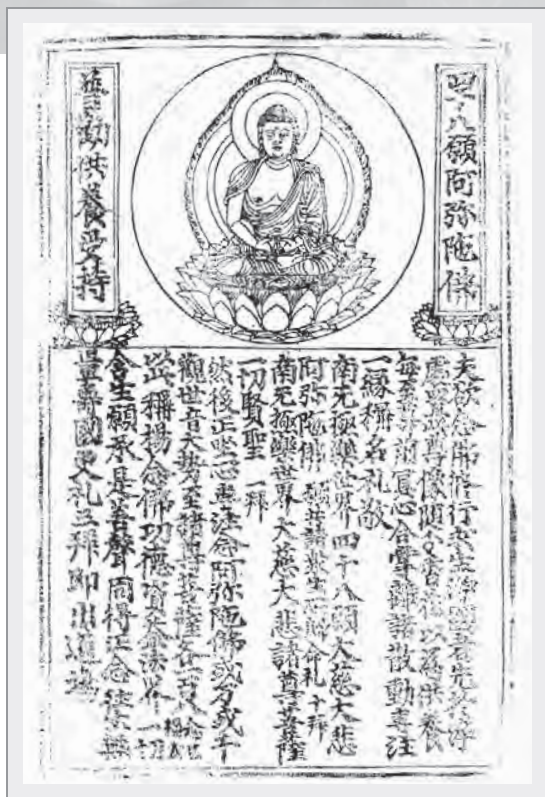 四十八願阿弥陁佛
普勸供養受持
夫欲念佛修行求生淨國者先於淨
處置此尊像隨分香花以為供養
每至尊前冥心合掌離諸散動專注
一緣稱名礼敬
南无極樂世界四十八願大慈大悲
阿弥陁佛 願共諸衆生一心歸命礼 十拜
南无極樂世界大慈大悲諸尊菩薩
一切賢聖 一拜
然後正坐一心專注念阿弥陁佛或万或千
觀世音大勢至諸尊菩薩各一百八念
以此稱揚念佛功德資益法界一切
含生願承是善聲同得正念往生無
量壽國更礼三拜即出道場